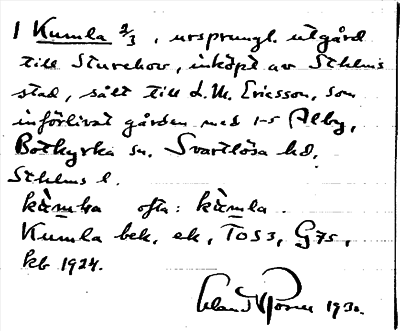 1 Kumla 2/3, ursprungl. utgård
till Sturehov, inköpt av Sthlms
stad, sålt till L.M. Ericsson, som
införlivat gården med 1-5 Alby,
Botkyrka sn. Svartlösa hd,
Sthlms l.
kà̀mla ofta: kàmla.
Kumla bek. ek, T053, G75,
kb 1924.
Erland Rosell 1930.